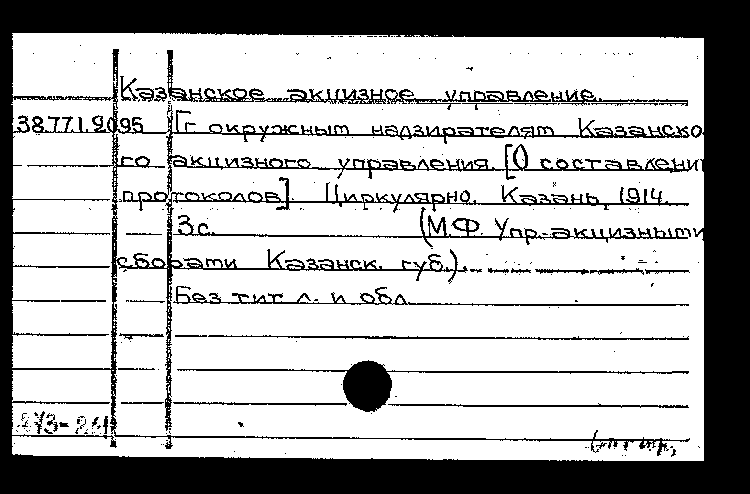 Казанское акцизное управление.
38.77.1.9095 Гг окружным надзирателям Казанско
го акцизного управления. [О составлени
протоколов]. Циркулярно. Казань, 1914.
3с. (М.Ф. Упр. акцизными
сборами Казанск. губ.).
Без тит л. и обл.